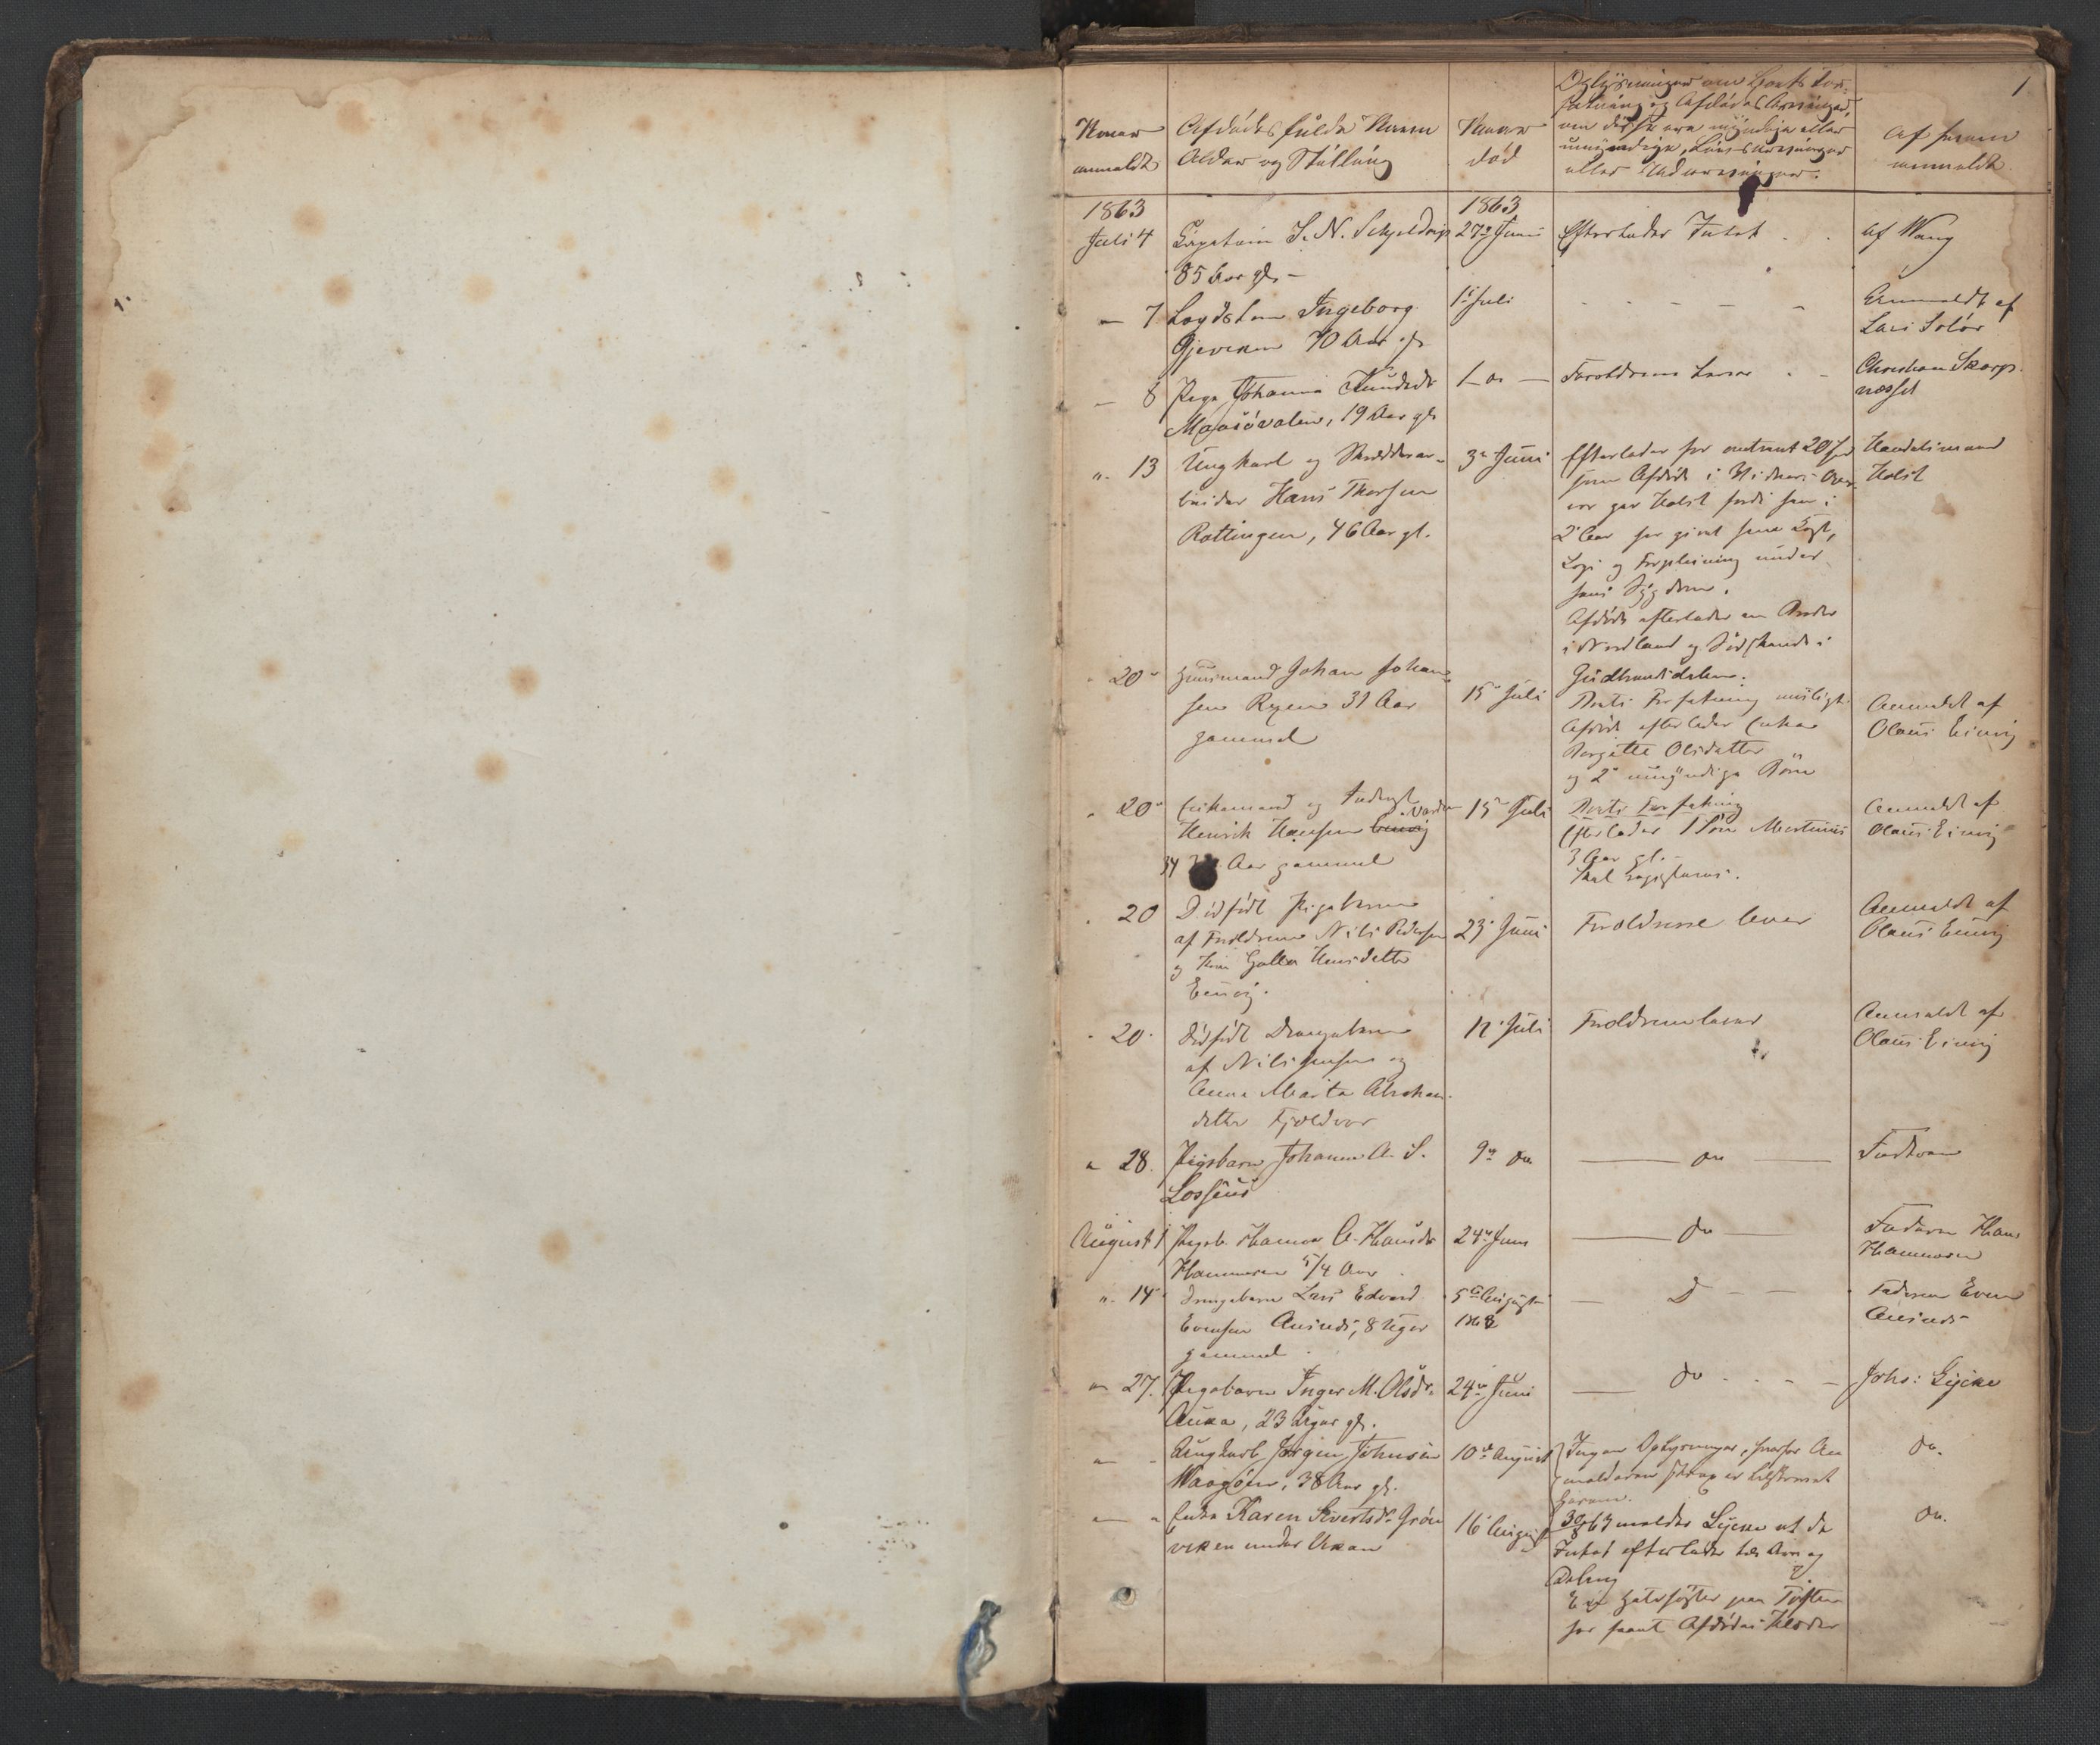 1
Naar
anmeldt
Afdødes fulde Navn
Alder og Stilling
Naar
død
Oplysninger om Boets For-
fatning og Afdødes Arvinger,
om disse ere myndige eller
umyndige, Livsarvinger
eller Udarvinger.
Af hvem
anmeldt
1863
Juli 4
S. N. Schjeldrup
85 Aar gl. –
1863
27de Juni
Efterlader Intet
af Wang
— 7
Ingeborg
Gjeviken 70 Aar gl.
1ste Juli
Anmeldt af
Lars Solør
— 8
Pige Johanna Knudsdr
Maasøvalen, 19 Aar gl.
Forældrene lever
Christian Skarps-
næsset
" 13
Ungkarl og Skrædderar-
beider Hans Thorsen
Rottingen, 46 Aar gl.
3de Juni
Efterlader sig omtrent 20
som Afdøde i
gav Holst fordi han i
2de Aar har givet ham Kost,
Logi og Forpleining under
hans Sygdom.
Afdøde efterlader en Broder
i Nordland og Sødskende i
Gudbrandsdalen.
Handelsmand
Holst
" 20de
Huusmand Johan Johan-
sen Ryen 31 Aar
gammel
15de Juli
Boets Forfatning usligt
Afdøde efterlader Enke
Bergitte Olsdatter
og 2de umyndige Børn
Anmeldt af
Olaus Einvig
" 20de
Enkemand og
Henrik Hansen
34 Aar gammel
15de Juli
Boets Forfatning
Efterlader 1 Søn Martinus
3 Aar gl. –
Skal registreres.
Anmeldt af
Olaus Einvig
" 20
Dødfødt Pigebarn
af Forældrene Nils Pedersen
og Hansdatter
Einvig.
23de Juni
Forældrene lever
Anmeldt af
Olaus Einvig
" 20
Dødfødt Drengebarn
af Nils Jensen og
Anna Marta Abraham-
datter Fjeldvær
12te Juli
Forældrene lever
Anmeldt af
Olaus Einvig
" 28.
Pigebarn Johanna A. S.
Lossius
9de do
— do —
Faderen
August 1
Pigeb. Hanna A. Hansdr
Hammeren 5/4 Aar
24de Juni
— do —
Faderen Hans
Hammeren
" 14
Drengebarn Lars Edvard
Evensen 8 Uger
gammel
5te August
186
— D —
Faderen Even
" 27.
Pigebarn Inger M. Olsdr.
Auka, 23 Uger gl.
24de Juni
— do —
Johs: Lycke
— "
Ungkarl Jørgen Johnsen
Waagøen, 38 Aar gl.
10de August
Ingen Oplysninger, hvorfor An-
melderen
do.
— "
Enke Karen Sivertsdr Grøn-
viken under Ukan
16de August
30/8 63 melder Lycke at de
Intet efterlader
paa Tusteren
har faaet Afdødes Klæder
do.